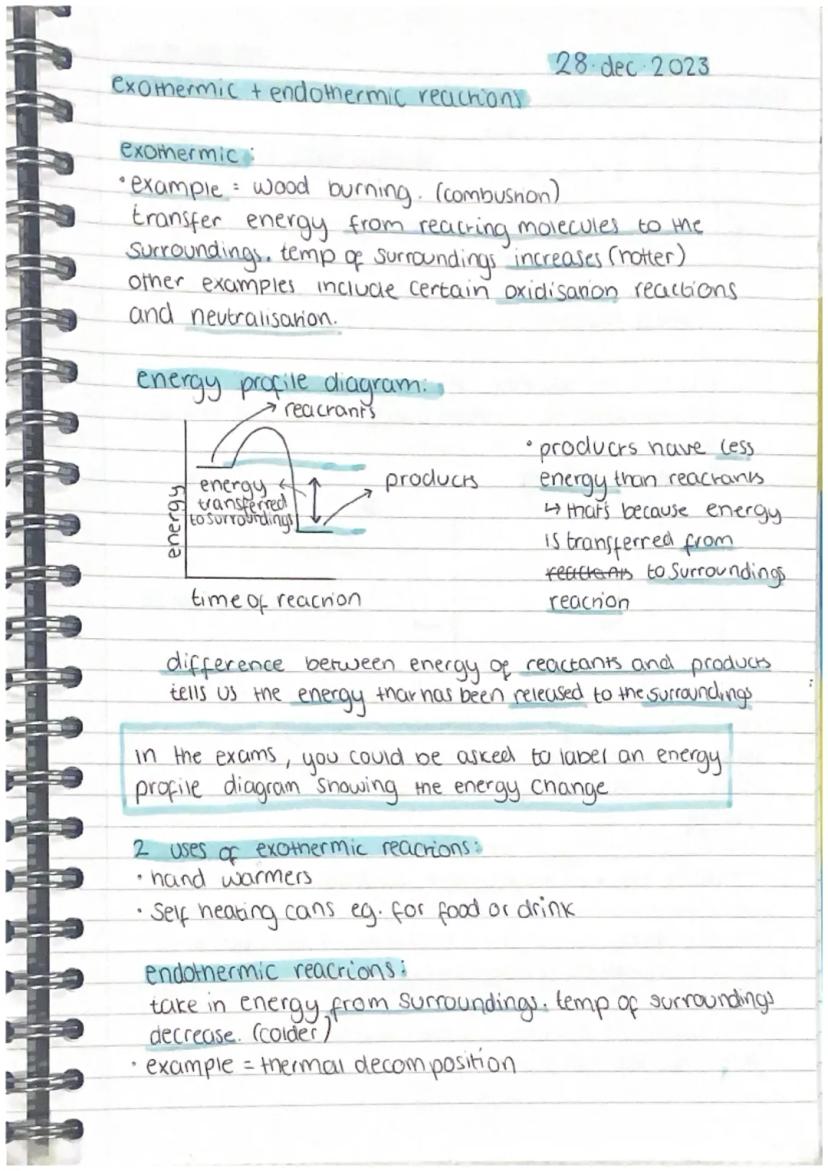 28.dec.2023
exothermic + endothermic reactions
exothermic:
• example = wood burning. (combustion)
transfer energy from reacting molecules to the
surroundings. temp of surroundings increases (hotter)
other examples include certain oxidisation reactions
and neutralisation.
energy profile diagram:
reactants
energy
transferred
to surroundings
products
energy
time of reaction
• products have less
energy than reactants
↳ that's because energy
is transferred from
reactants to surroundings
reaction
difference between energy of reactants and products
tells us the energy that has been released to the surroundings
in the exams, you could be asked to label an energy
profile diagram showing the energy change
2 uses of exothermic reactions:
• hand warmers
• Self heating cans eg. for food or drink
endothermic reactions:
take in energy from surroundings. temp of surroundings
decrease. (colder)
• example = thermal decomposition